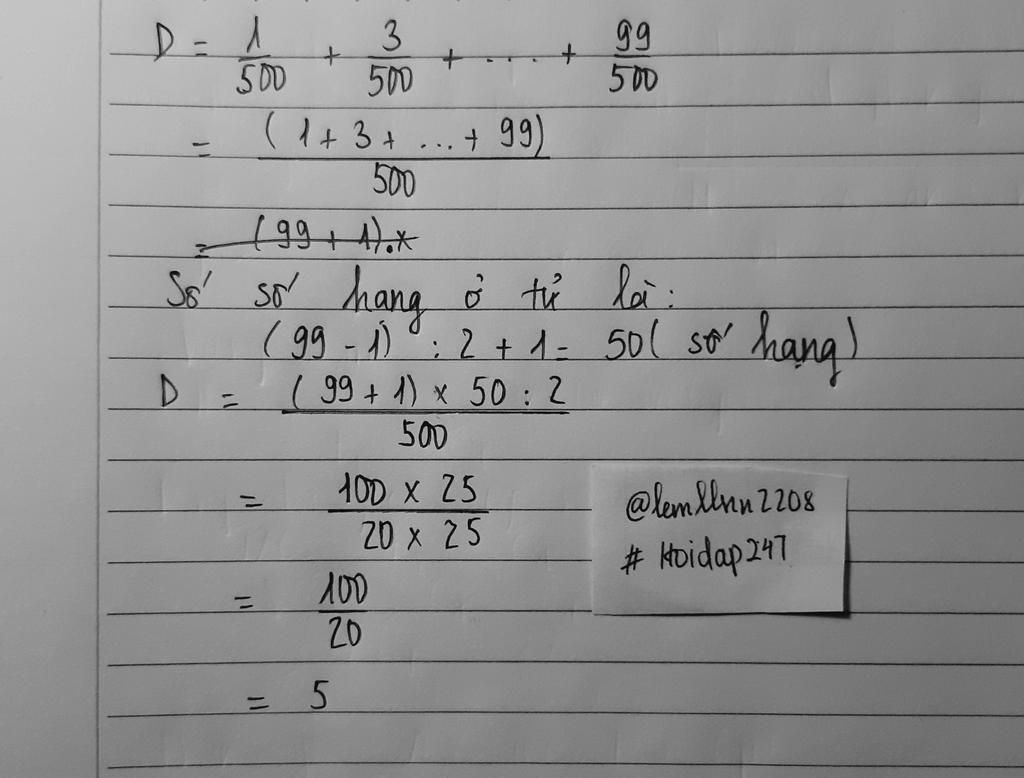 D = 1/500 + 3/500 + .... + 99/500
= (1 + 3 + ... + 99)/500
= (99 + 1).x
Số số hang ở tử là:
(99 - 1) : 2 + 1 = 50 ( số hạng)
D = (99 + 1) x 50 : 2/500
= 100 x 25/20 x 25
= 100/20
= 5
@lemllnn2208
# Hoidap247